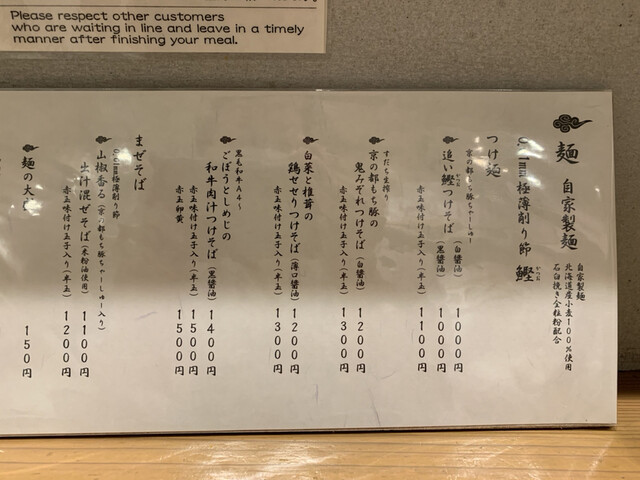 Please respect other customers
who are waiting in line and leave in a timely
manner after finishing your meal.
麺 自家製麺
自家製麺
北海道産小麦100%使用
石臼挽き全粒粉配合
極薄削り節 鰹
かつお
つけ麺
京の都もち豚ちゃーしゅー
追い鰹つけそば (白醤油) 1000円
かつお
(黒醤油) 1000円
赤玉味付け玉子入り(半玉) 1100円
すだち生搾り
京の都もち豚の
鬼みぞれつけそば (白醤油) 1200円
赤玉味付け玉子入り(半玉) 1300円
白菜と椎茸の
鶏せせりつけそば (薄口醤油) 1200円
赤玉味付け玉子入り(半玉) 1300円
黒毛和牛A4～
ごぼうとしめじの
和牛肉汁つけそば (黒醤油) 1400円
赤玉味付け玉子入り(半玉) 1500円
赤玉卵黄 1500円
まぜそば
極薄削り節
山椒香る (京の都もち豚ちゃーしゅー入り)
出汁混ぜそば (米粉油使用) 1100円
赤玉味付け玉子入り(半玉) 1200円
麺の大盛 150円